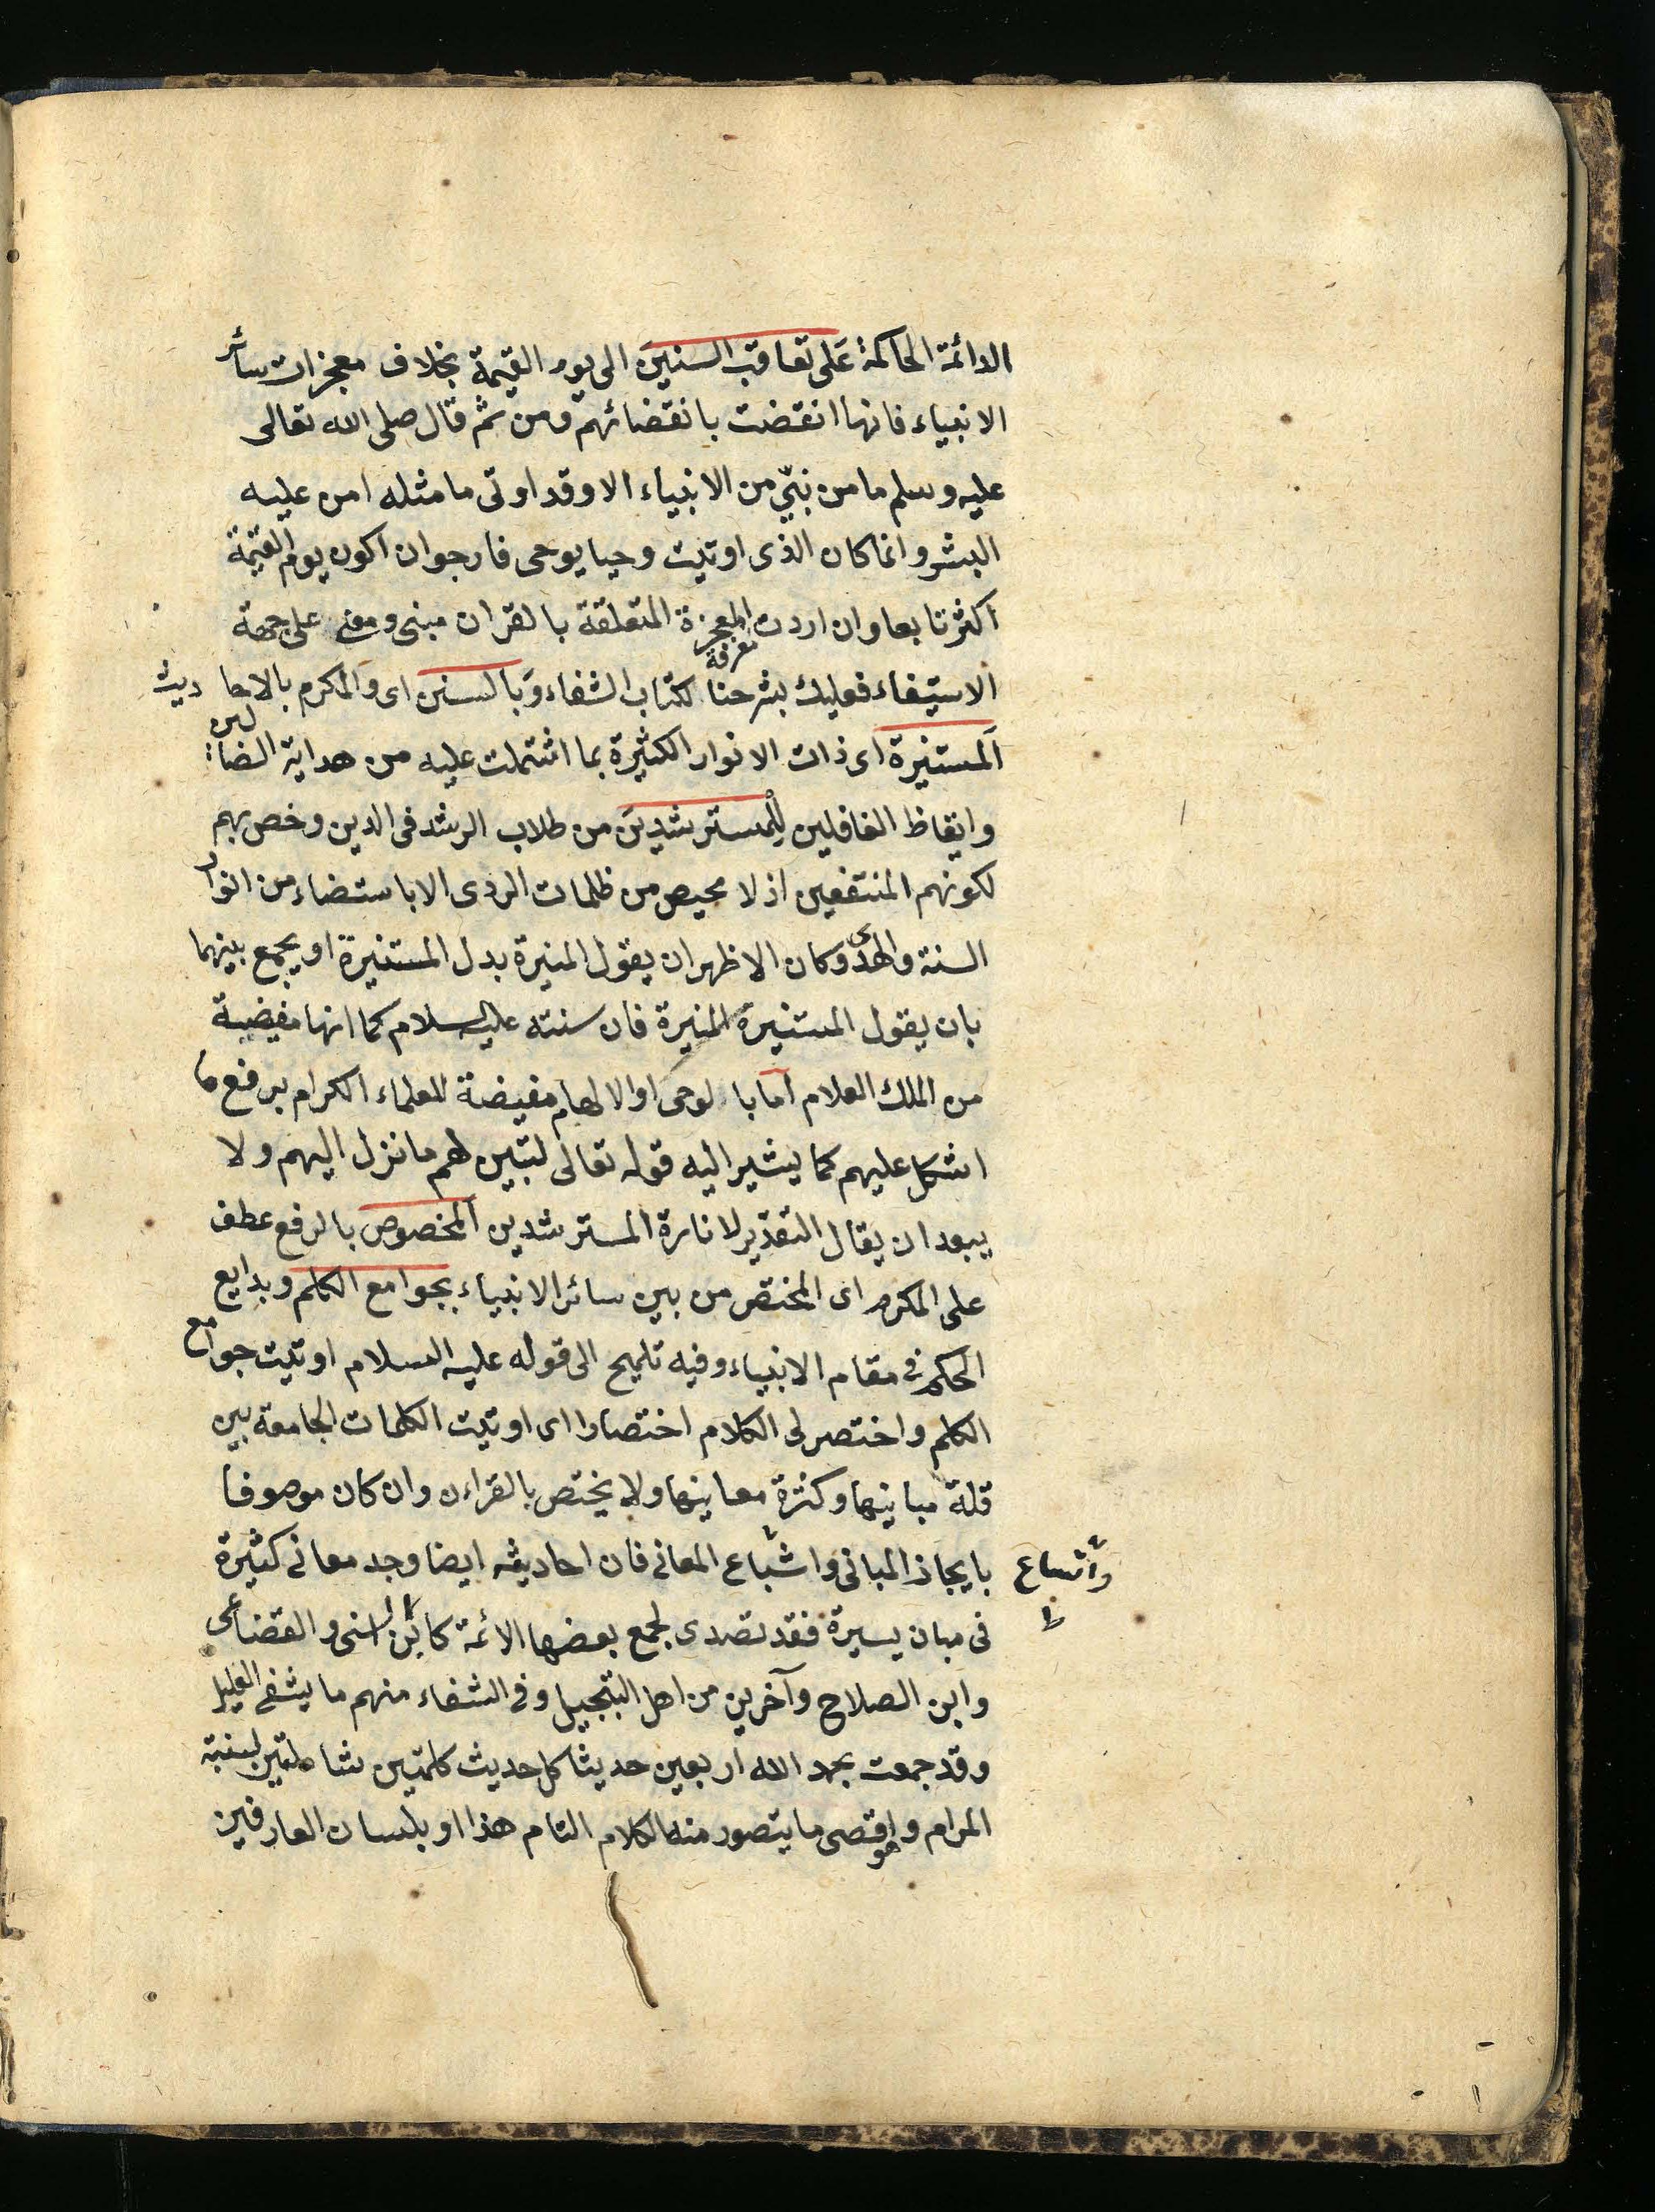 الدائمة الحاكمة عَلى تعاقب السنينَ الى يوم القيمة بخلاف معجزات سائر
الانبياء فانها انقضت بانقضائهم ومن ثم قال صلى الله تعالى
عليه وسلم ما من نبيّ من الانبياء الا وقد اوتى ما مثله امن عليه
البشر وانما كان الذى اوتيت وحيا يوحى فارجو ان اكون يوم القيمة
اكثر تابعا وان اردت معرفة المعجزة المتعلقة بالقران مبنى ومعنى على جهة
الاستيفاء فعليك بشرحنا لكتاب الشفاء وَبالسنن اى والمكرم بالاحاديث
اَلمستنيرة اى ذات الانوار الكثيرة بما اشتملت عليه من هداية الضالين
وايقاظ الغافلين لِلْمسترشدينَ من طلاب الرشد فى الدين وخص بهم
لكونهم المنتفعين اذ لا محيص من ظلمات الردى الا باستضاء من انوار
السنة والهدى وكان الاظهر ان يقول المنيرة بدل المستنيرة او يجمع بينهما
بان يقول المستنيرة المنيرة فان سنته عليه السلام كما انها مفيضة
من الملك العلام اما بالوحى او الالهام مفيضة للعلماء الكرام برفع ما
اشكل عليهم كما يشير اليه قوله تعالى لتبين لهم ما نزل اليهم ولا
يبعد ان يقال التقدير لانارة المسترشدين اَلمخصوص بالرفع عطف
على المكرم اى المختص من بين سائر الانبياء بجوامع الكلم وبدايع
الحكم فى مقام الانبياء وفيه تلميح الى قوله عليه السلام اوتيت جوامع
الكلم واختصر لى الكلام اختصارا اى اوتيت الكلمات الجامعة بين
قلة مبانيها وكثرة معانيها ولا يختص بالقراءن وان كان موصوفا
بايجاز المبانى واشباع المعانى فان احاديثه ايضا وجد معانى كثيرة
واتساع
ط
فى مبان يسيرة فقد تصدى لجمع بعضها الائمة كابن السنى والقضاعى
وابن الصلاح وآخرين من اهل التبجيل وفى الشفاء منهم ما يشفى العليل
وقد جمعت بحمد الله اربعين حديثا كل حديث كلمتين شاملتين لبغية
المرام وهو اقصى ما يتصور منه الكلام التام هذا او بلسان العارفين